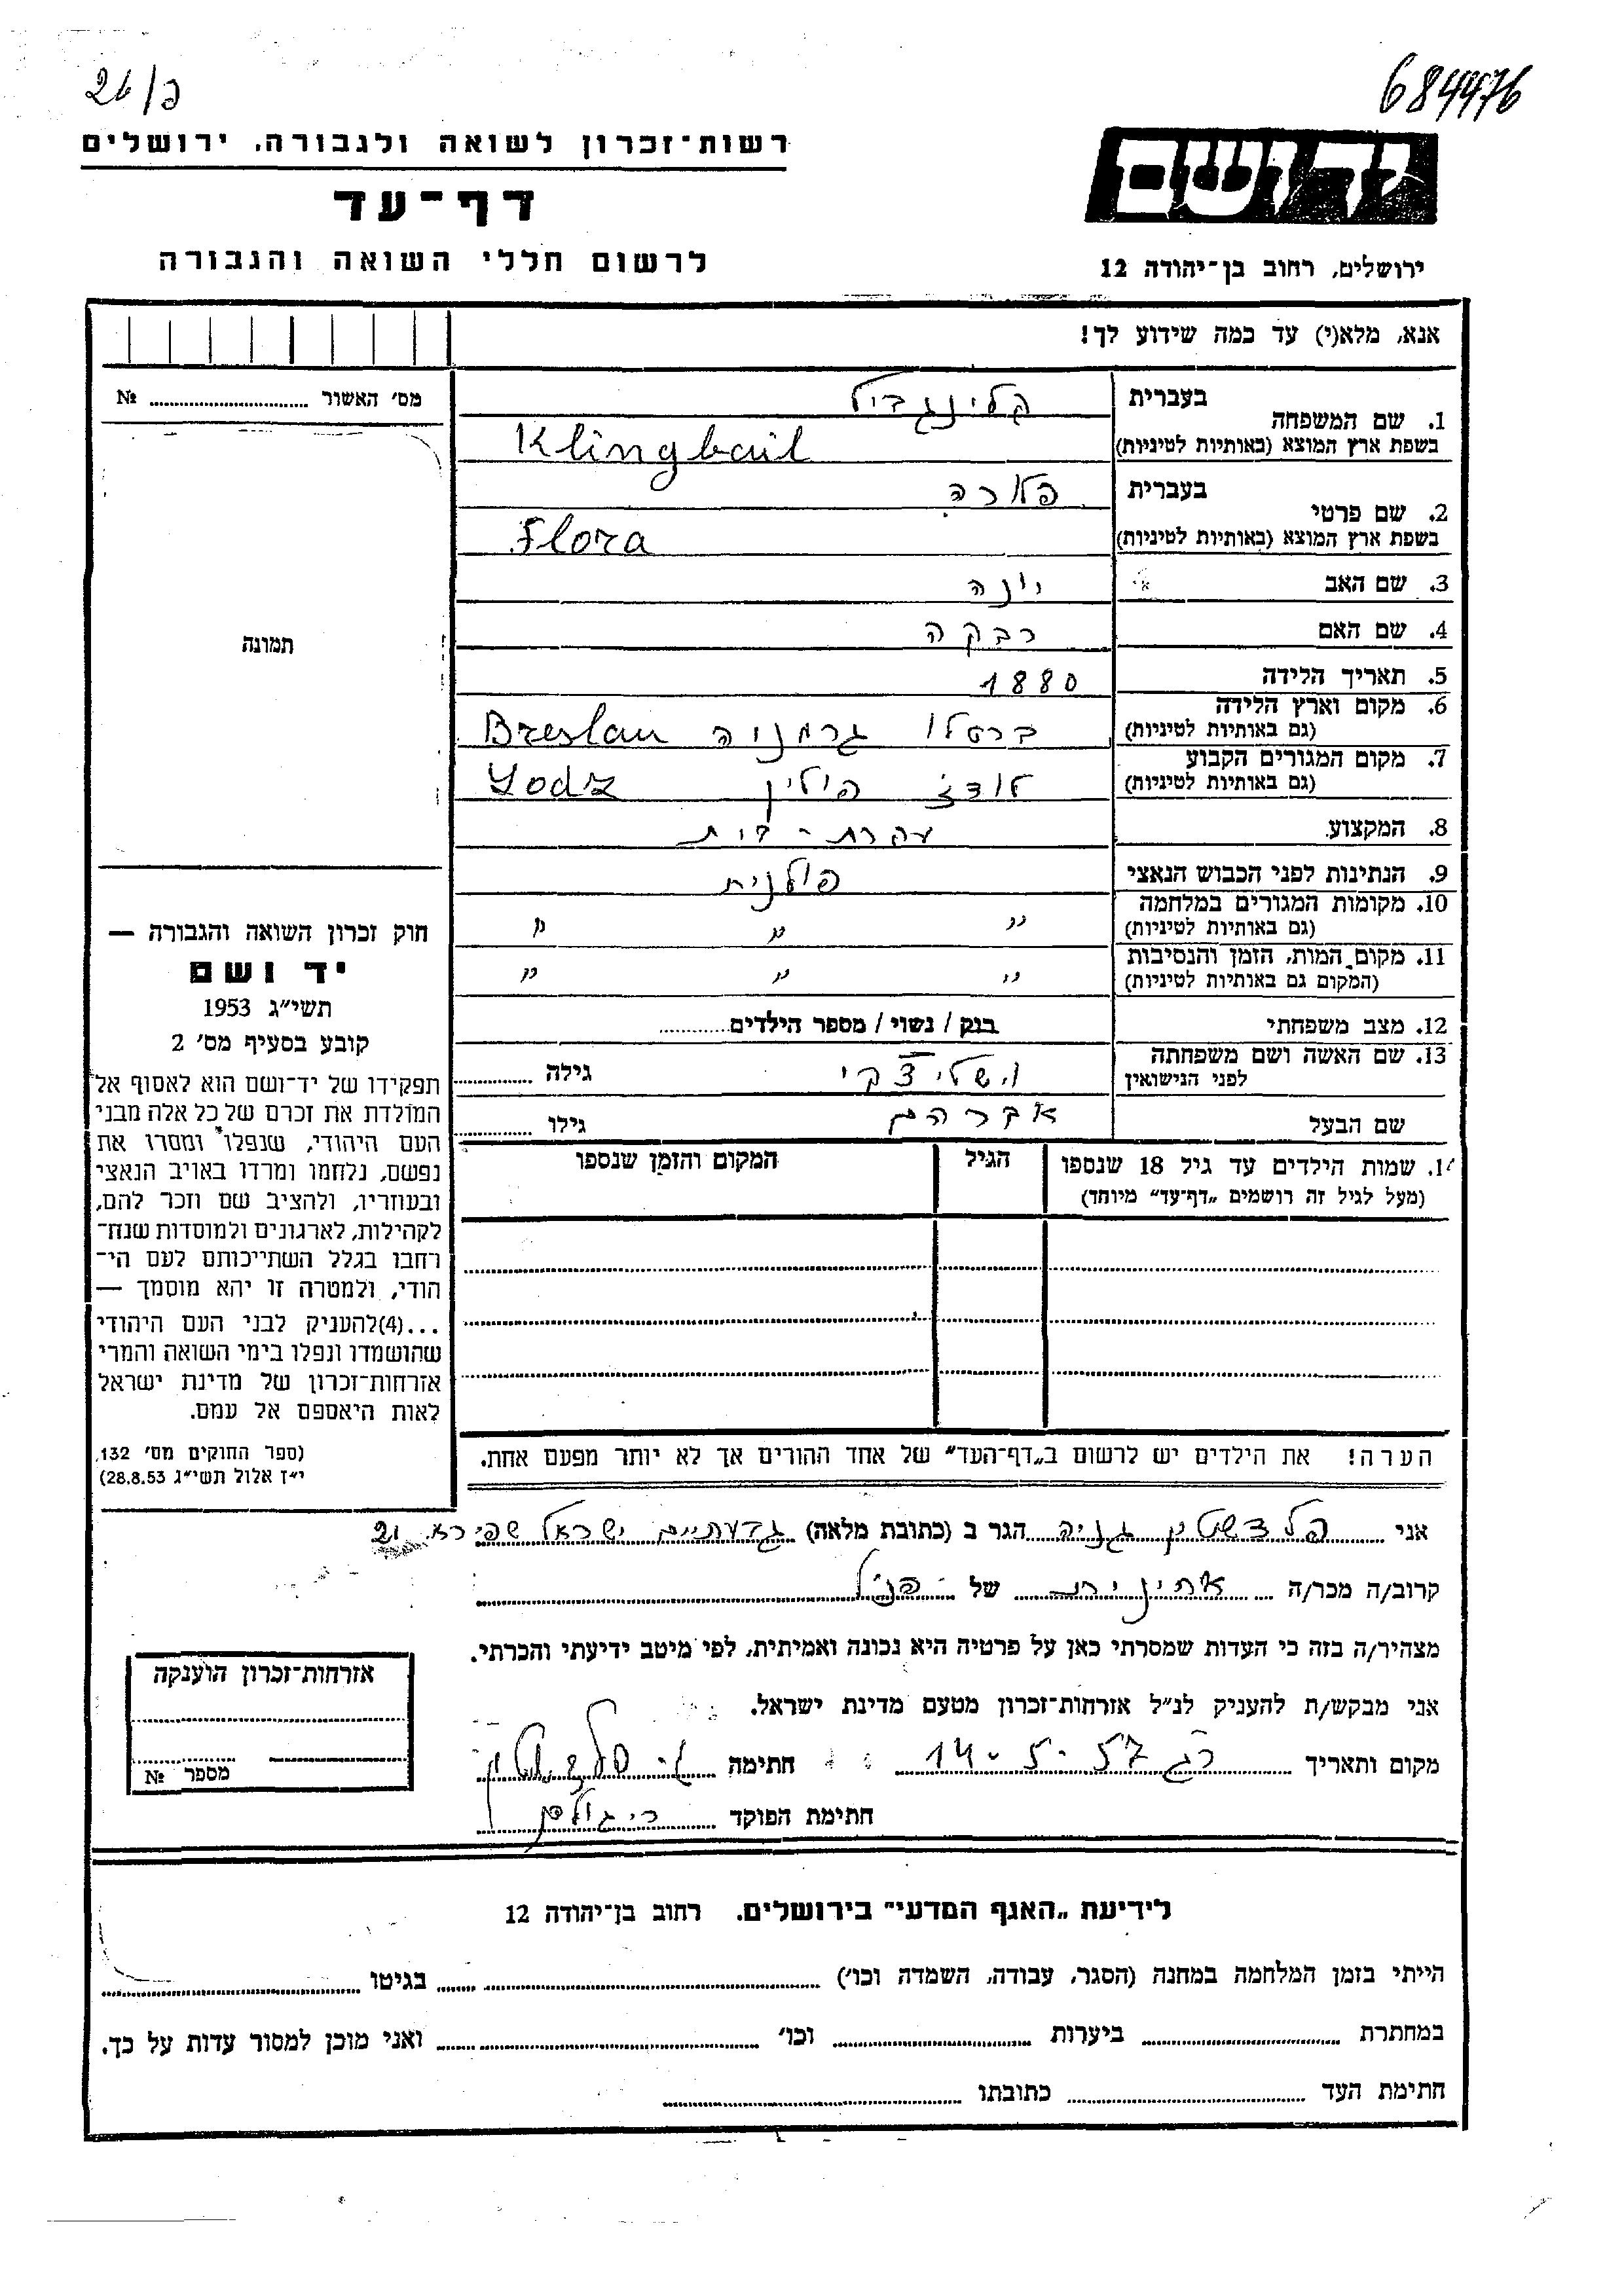 684476
26/כ
ידושם
ירושלים, רחוב בן־יהודה 12
רשות־זכרון לשואה ולגבורה, ירושלים
דף־עד
לרשום חללי השואה והגבורה
אנא, מלא(י) עד כמה שידוע לך!
1. שם המשפחה
בעברית קלינגביל
בשפת ארץ המוצא (באותיות לטיניות) Klingbail
2. שם פרטי
בעברית פלורה
בשפת ארץ המוצא (באותיות לטיניות) Flora
3. שם האב יונה
4. שם האם רבקה
5. תאריך הלידה 1880
6. מקום וארץ הלידה
(גם באותיות לטיניות) ברסלו גרמניה Breslau
7. מקום המגורים הקבוע
(גם באותיות לטיניות) לודז' פולין Lodz
8. המקצוע. עקרת־בית
9. הנתינות לפני הכבוש הנאצי פולנית
10. מקומות המגורים במלחמה
(גם באותיות לטיניות) " " "
11. מקום המות, הזמן והנסיבות
(המקום גם באותיות לטיניות) " " "
12. מצב משפחתי רנק / נשוי / מספר הילדים
13. שם האשה ושם משפחתה
לפני הנישואין גילה
שם הבעל אברהם גילו
14. שמות הילדים עד גיל 18 שנספו הגיל המקום והזמן שנספו
(מעל לגיל זה רושמים „דף־עד" מיוחד)
הערה! את הילדים יש לרשום ב„דף־העד" של אחד ההורים אך לא יותר מפעם אחת.
מס' האשור №
תמונה
חוק זכרון השואה והגבורה —
יד ושם
תשי"ג 1953
קובע בסעיף מס' 2
תפקידו של יד־ושם הוא לאסוף אל
המולדת את זכרם של כל אלה מבני
העם היהודי, שנפלו ומסרו את
נפשם, נלחמו ומרדו באויב הנאצי
ובעוזריו, ולהציב שם וזכר להם,
לקהילות, לארגונים ולמוסדות שנח־
רחבו בגלל השתייכותם לעם הי־
הודי, ולמטרה זו יהא מוסמך —
...(4)להעניק לבני העם היהודי
שהושמדו ונפלו בימי השואה והמרי
אזרחות־זכרון של מדינת ישראל
לאות היאספם אל עמם.
(ספר החוקים מס' 132,
י"ז אלול תשי"ג 28.8.53)
אני גניה הגר ב (כתובת מלאה) גבעתיים ישראל שפירא 21
קרוב/ה מכר/ה של הנ"ל
מצהיר/ה בזה כי העדות שמסרתי כאן על פרטיה היא נכונה ואמיתית, לפי מיטב ידיעתי והכרתי.
אני מבקש/ת להעניק לנ"ל אזרחות־זכרון מטעם מדינת ישראל.
מקום ותאריך רג 14-5-57 חתימה
חתימת הפוקד
אזרחות־זכרון הוענקה
מספר №
לידיעת „האגף המדעי" בירושלים. רחוב בן־יהודה 12
הייתי בזמן המלחמה במחנה (הסגר, עבודה, השמדה וכו') בגיטו
במחתרת ביערות וכו' ואני מוכן למסור עדות על כך.
חתימת העד כתובתו